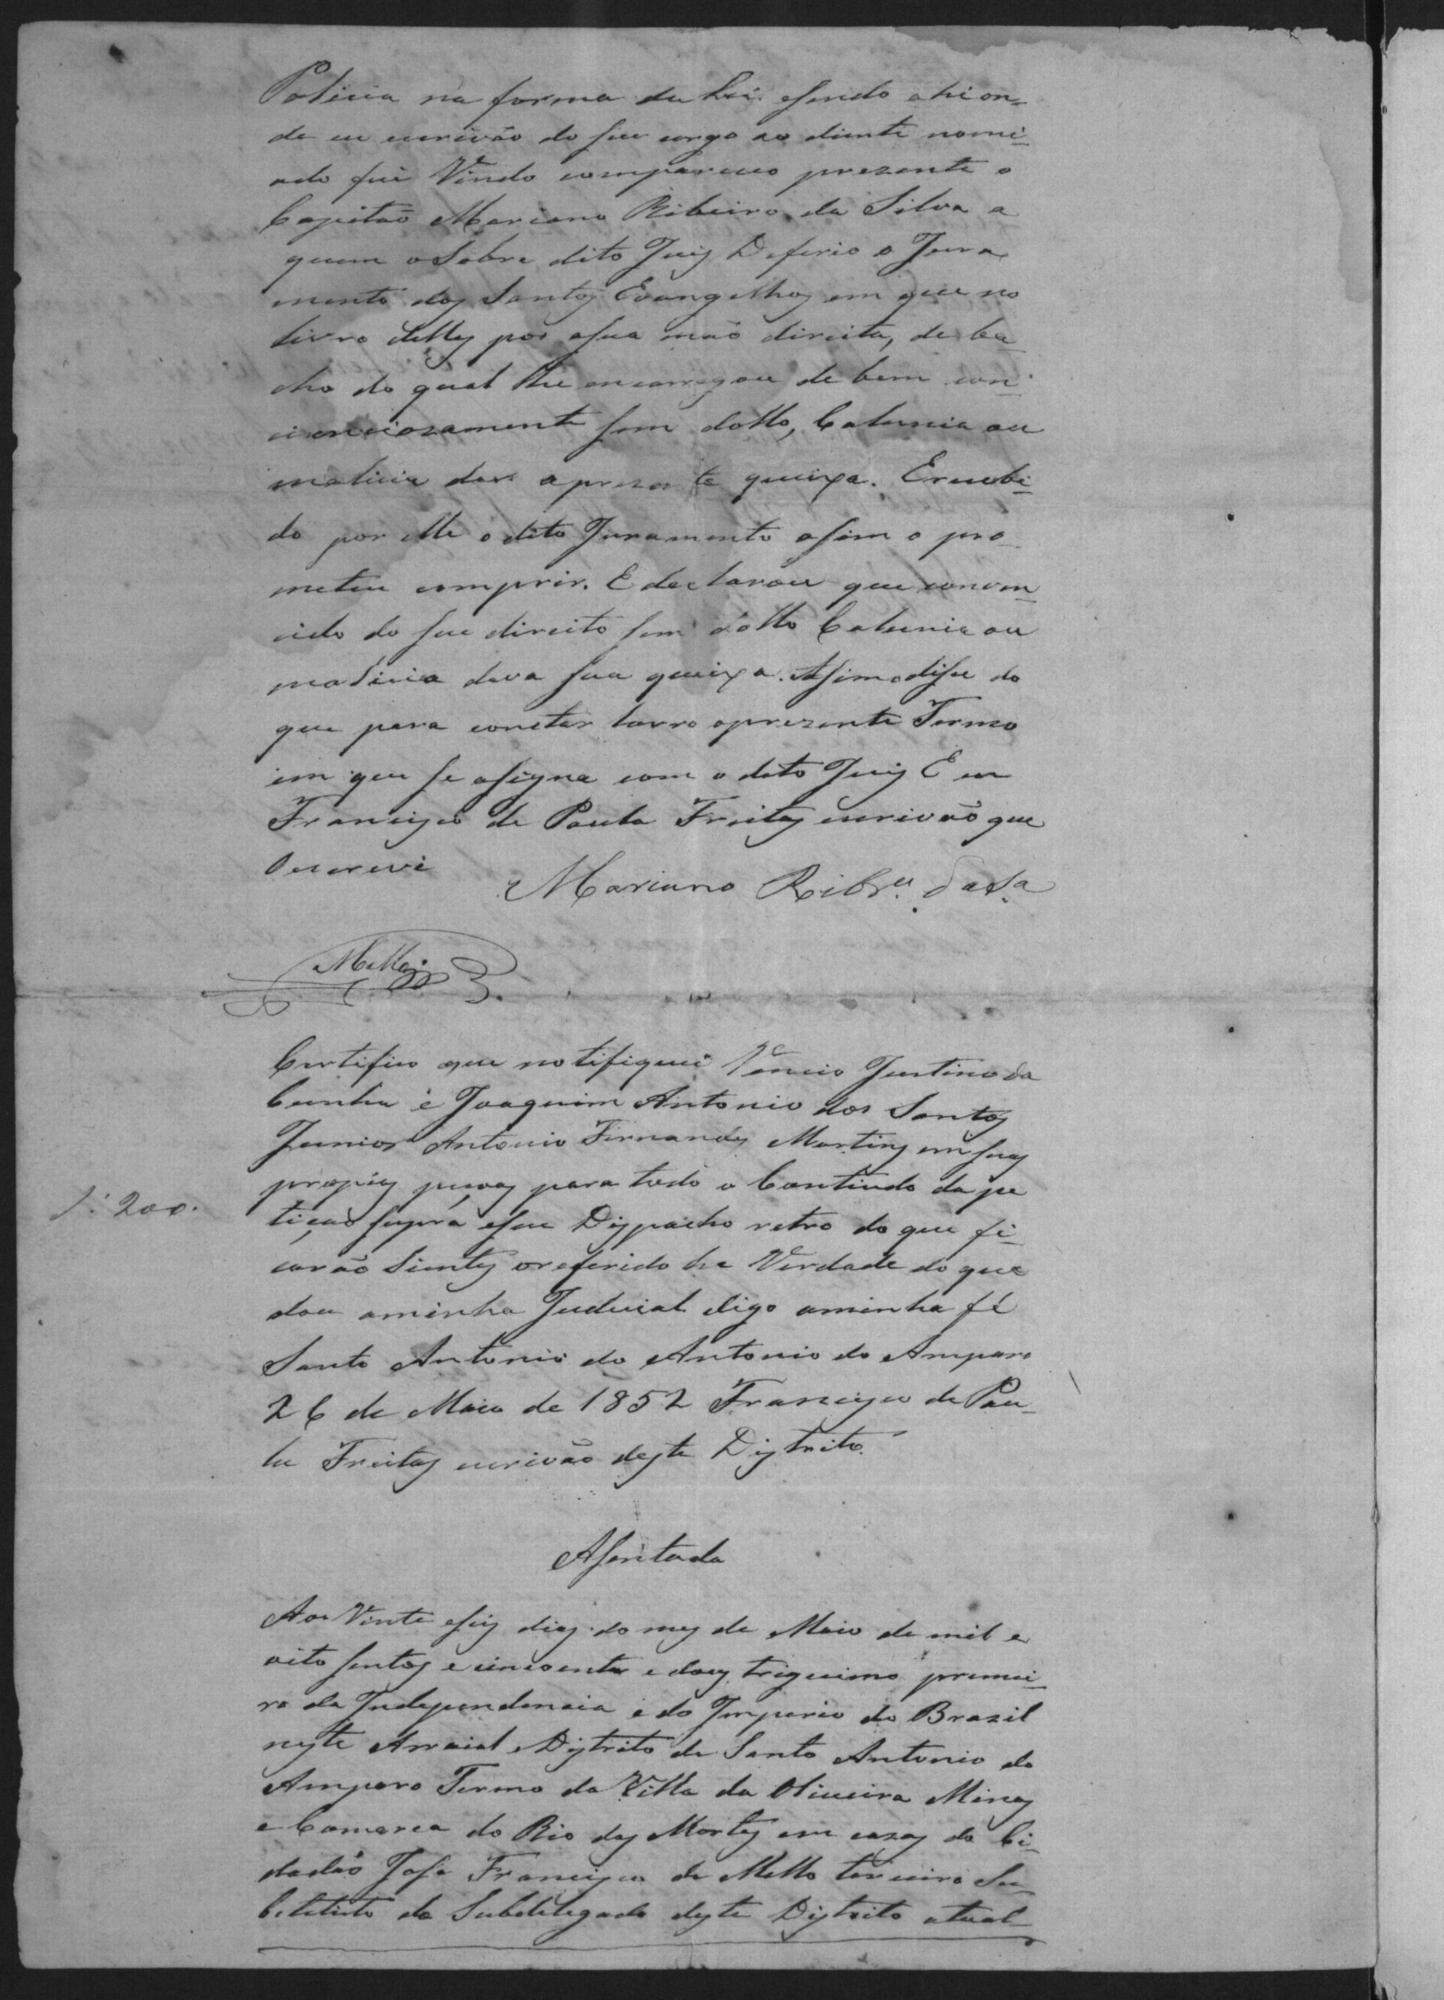 Policia na forma da Lei esendo ahi on-
de eu escrivão do seu cargo ao diante nomi-
ado fui Vindo compareceo prezente o
Capitão Mariano Ribeiro da Silva a
quem o Sobre dito Juis Deferio o Jura
mento dos Santos Evangelhos em que no
livro delles pos asua mão direita, de ba-
cho do qual lhe encarregou de bem con-
cienciozamente sem dollo, Calunia ou
malicia dar aprezente queixa. Erecebi-
do por elle o dito Juramento asim o pro-
meteu comprir. E declarou que conven-
cido do seu direito sem dollo Calunia ou
malicia dava sua queixa. Asimodise do
que para constar lavro oprezente Termo
em que se asigna com o dito Juis E eu
Francisco de Paula Freitas escrivão que
Oescrevi
Mariano Ribr.º da Sa
Mello
Certifico que notifiquei Vencio Justino da
Cunha e Joaquim Antonio dos Santos
Junior Antonio Fernandes Martins em suas
propias pesoas para todo o Contiudo da pe
tiçao supra eseu Dispacho retro do que fi-
carão Sientes oreferido he Verdade do que
dou aminha Judicial digo aminha fé
Santo Antonio do Antonio do Amparo
26 de Maio de 1852 Francisco de Pau-
la Freitas escrivão deste Districto
1: 200.
Asentada
Aos Vinte eseis dias do mes de Maio de mil e
oito sentos e cincoenta e dous trigecimo premei-
ro da Independencia e do Imperio do Brazil
neste Arraial e Distrito de Santo Antonio do
Amparo Termo da Villa da Oliveira Minas
e Comarca do Rio das Mortes em cazas do Ci-
dadão Jose Francisco de Mello terceiro Su-
bstituto do Subdelegado deste Distrito atual